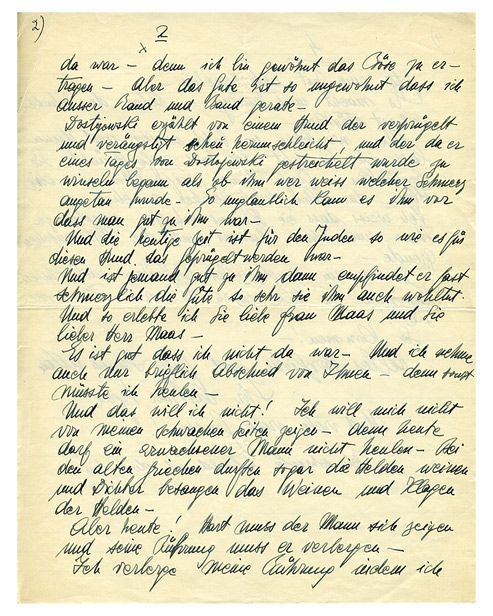 2)
2
da war – denn ich bin gewöhnt das Böse zu er-
tragen – Aber das Gute ist so ungewohnt dass ich
ausser Rand und Band gerate –
Dostojewski erzählt von einem Hund der verprügelt
und verängstigt scheu herumschleicht, und der da er
eines Tages von Dostojewski gestreichelt wurde zu
winseln begann als ob ihm wer weiss welcher Schmerz
angetan wurde – So unglaublich kam es ihm vor
dass man gut zu ihm war –
Und die heutige Zeit ist für den Juden so wie es für
diesen Hund das Geprügeltwerden war –
Und ist jemand gut zu ihm dann empfindet er fast
schmerzlich die Güte so sehr sie ihm auch wohltut.
Und so erlebte ich Sie liebe Frau Maas und Sie
lieber Herr Maas –
Es ist gut dass ich nicht da war – Und ich nehme
auch nur brieflich Abschied von Ihnen – denn sonst
müsste ich heulen –
Und das will ich nicht! Ich will mich nicht
von meinen schwachen Seiten zeigen – denn heute
darf ein erwachsener Mann nicht heulen – Bei
den alten Griechen durften sogar die Helden weinen
und Dichter besangen das Weinen und Klagen
der Helden –
Aber heute! Hart muss der Mann sich zeigen
und seine Rührung muss er verbergen –
Ich verberge meine Rührung indem ich